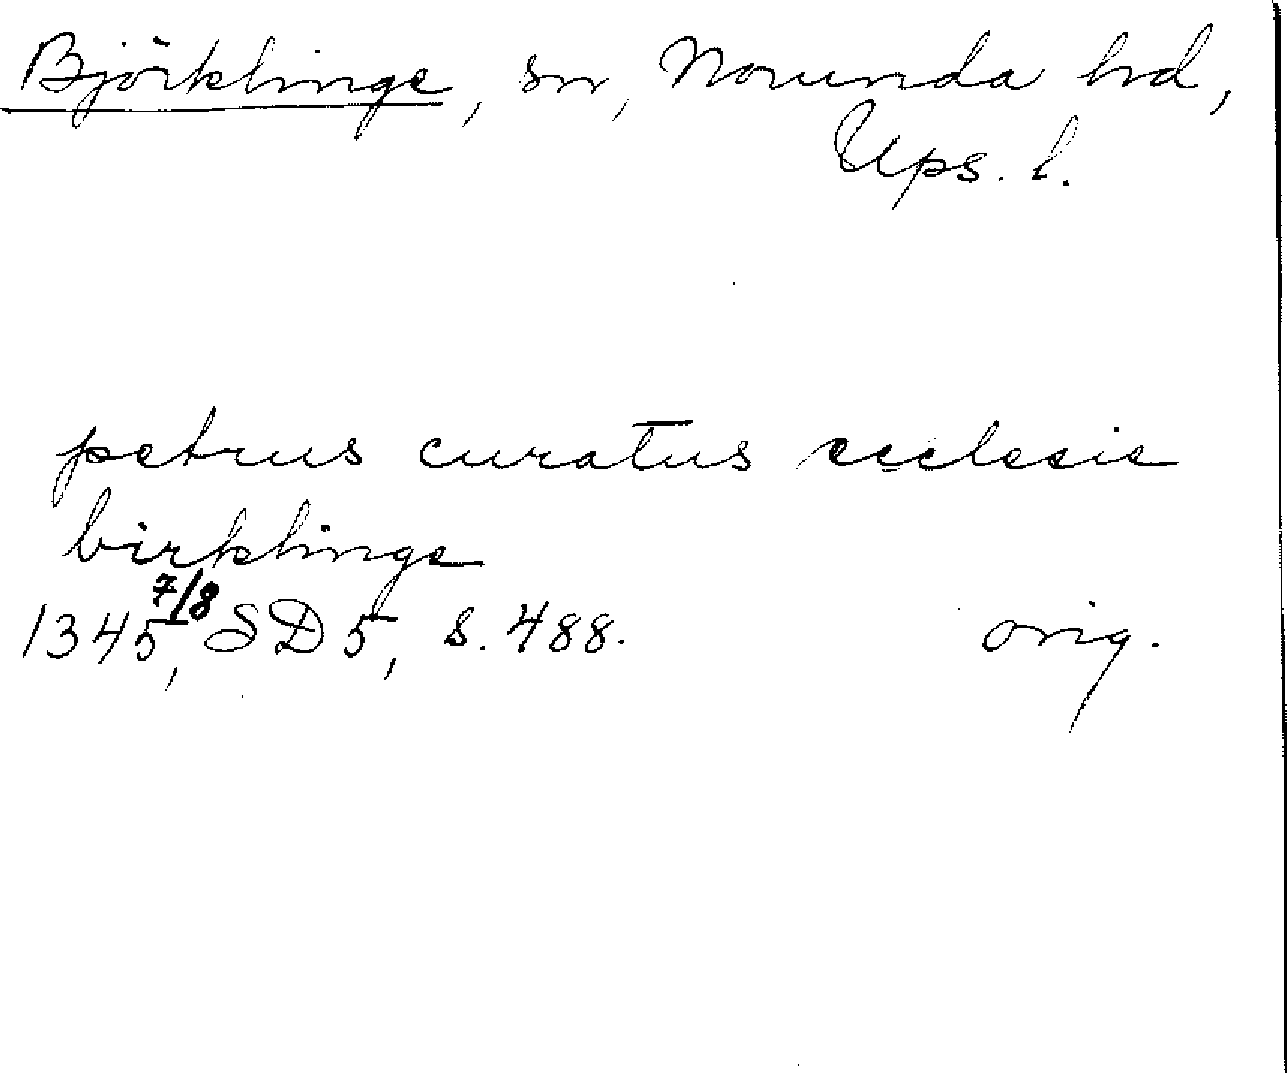 Björklinge, sn, Norunda hd,
Ups. l.
petrus curatus ecclesie
birklinge
1345 7/8, SD 5, s. 488. orig.